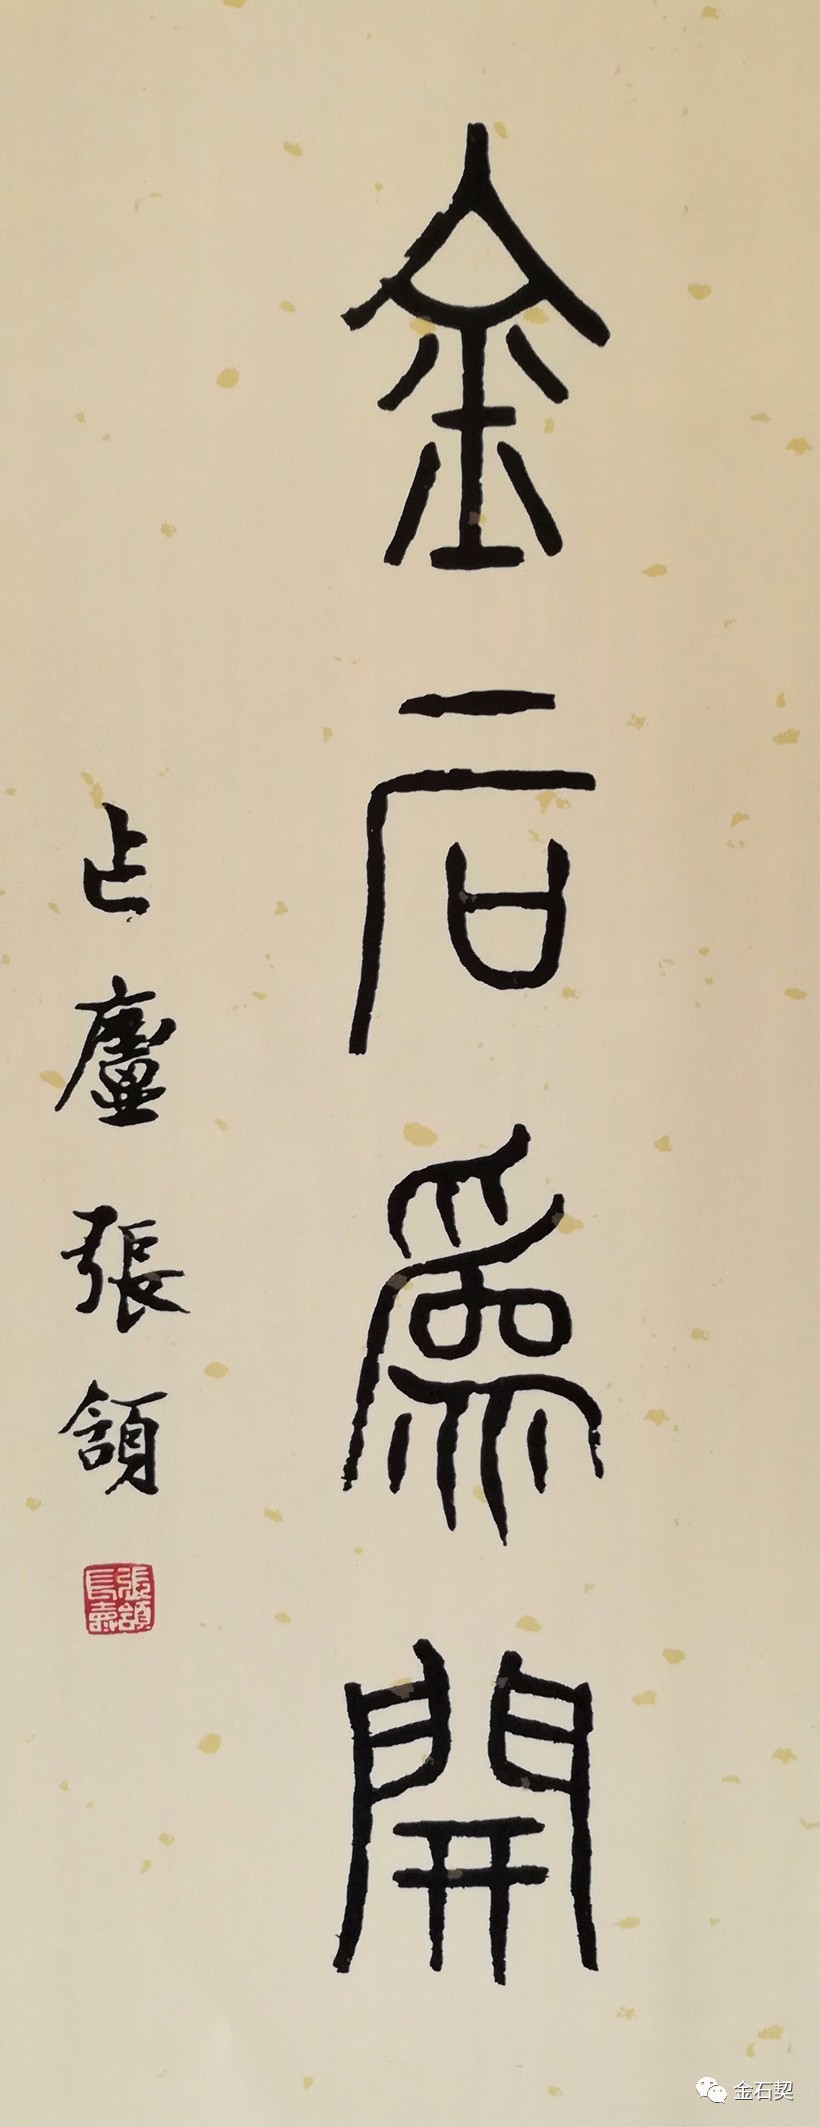 金石為開
乍廬張頷
張頷
長壽
金石契